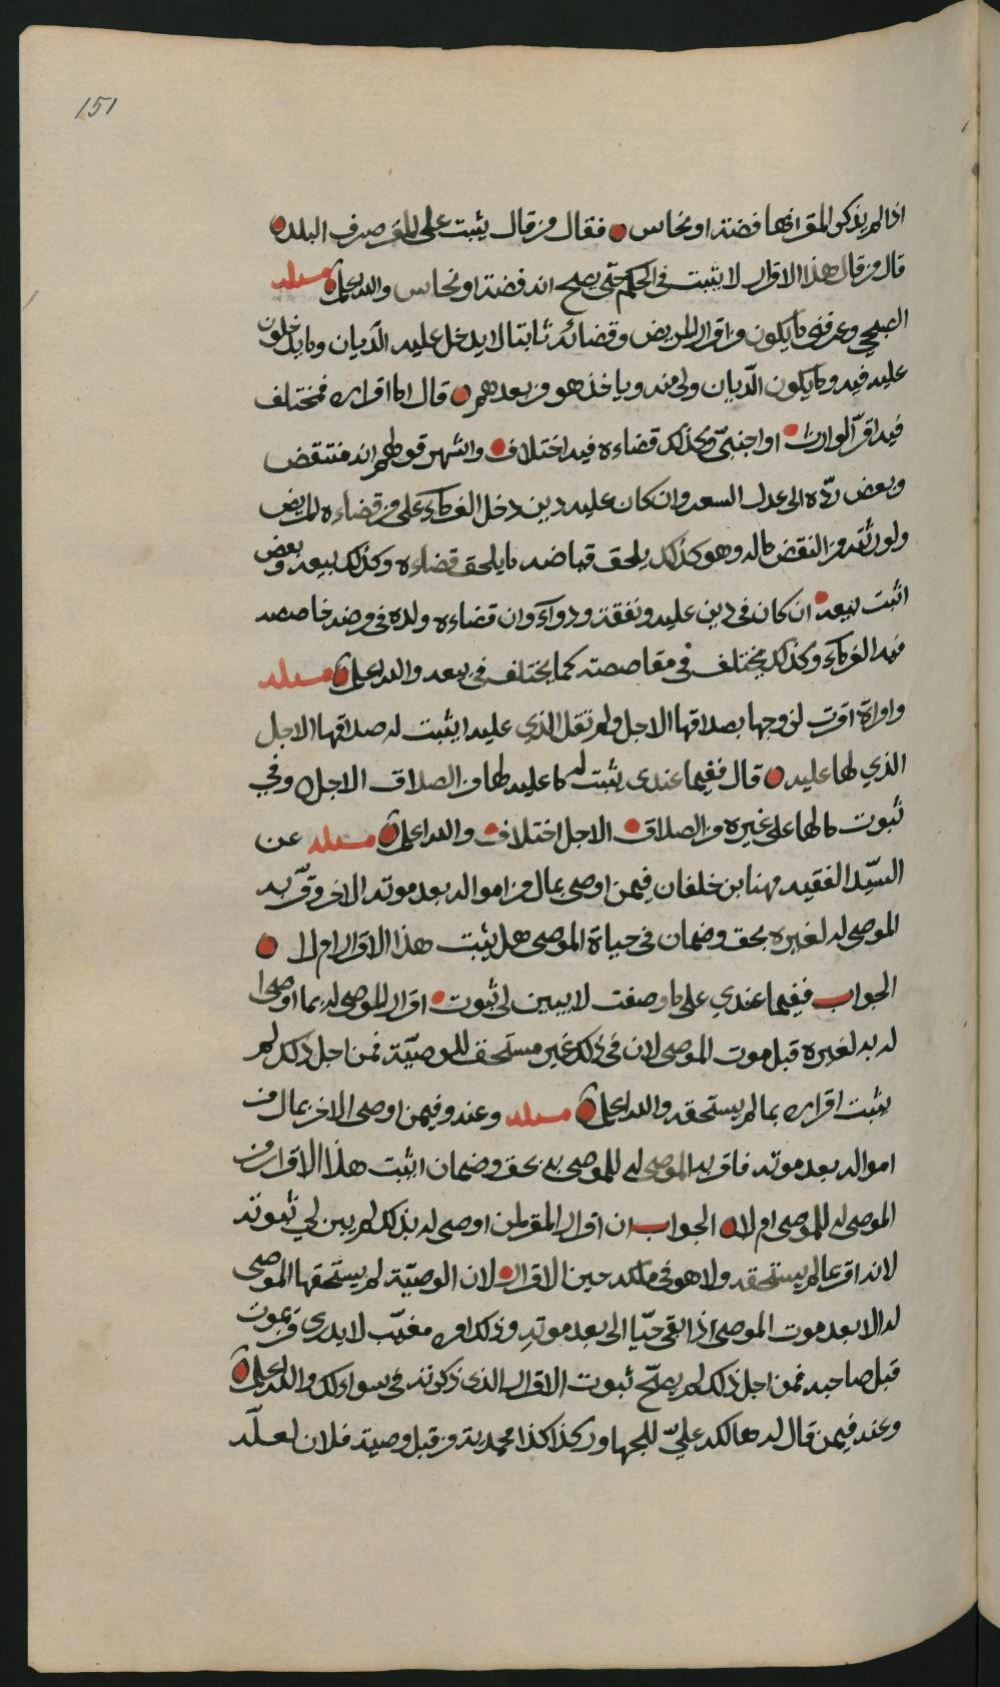 151
اذا لم يذكر المقر انها فضة او نحاس فقال من قال يثبت على المقر صرف البلد
قال من قال هذا الاقرار لا يثبت في الحكم حتى يصح انه فضة او نحاس والله اعلم مسئلة
الصبحي وعرفني ما يكون من اقرار المريض وقضائه ثابتا لا يدخل عليه الديان وما يدخلون
عليه فيه وما يكون الديان اولى منه وياخذهو من بعدهم قال اما اقراره فمختلف
فيه اقر لوارث او اجنبي وكذلك قضاءه فيه اختلاف واشهر قولهم انه منتقض
وبعض رده الى عدل السعر وان كان عليه دين دخل الغرماء على من قضاءه المريض
ولورثته من النقض ماله وهو كذلك يلحق قياضه ما يلحق قضاءه وكذلك بيعه وبعض
اثبت بيعه ان كان في دين عليه ونفقة ودواء وان قضاءه ولده في مرضه خاصصه
فيه الغرماء وكذلك مختلف في مقاصصته كما يختلف في بيعه والله اعلم مسئلة
وامراة اقرت لزوجها بصداقها الاجل ولم تقل الذي عليه ايثبت له صداقها الاجل
الذي لها عليه قال ففيما عندي يثبت له ما عليه لها من الصداق الاجل وفي
ثبوت ما لها على غيره من الصداق الاجل اختلاف والله اعلم مسئلة عن
السيد الفقيه مهنا بن خلفان فيمن اوصى بمال من امواله بعد موته لاخر وقر به
الموصى له لغيره بحق وضمان في حياة الموصي هل يثبت هذا الاقرار ام لا
الجواب ففيما عندي على ما وصفت لا يبين لي ثبوت اقرار الموصى له بما اوصى
له به لغيره قبل موت الموصي لان في ذلك غير مستحق للوصية فمن اجل ذلك لم
يثبت اقراره بما لم يستحقه والله اعلم مسئلة وعنه وفيمن اوصى لاخر بمال من
امواله بعد موته فاقر به الموصى له للموصي به بحق وضمان ايثبت هذا الاقرار من
الموصى له للموصي ام لا الجواب ان اقرار المقر لمن اوصى له بذلك لم يبن لي ثبوته
لانه اقر بما لم يستحقه ولا هو في ملكه حين الاقرار لان الوصية لم يستحقها الموصى
له الا بعد موت الموصي اذا بقي حيا الى بعد موته وذلك امر مغيب لا يدرى من يموت
قبل صاحبه فمن اجل ذلك لم يصح ثبوت الاقرار الذي ذكرته في سوالك والله اعلم
وعنه فيمن قال له هالك علي للجهاور كذا كذا محمدية من قبل وصية فلان لعله